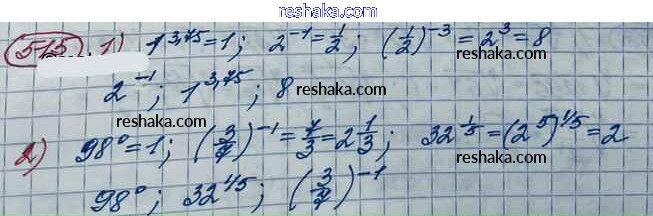 reshaka.com
515. 1) 1^3,75 = 1; 2^-1 = 1/2; (1/2)^-3 = 2^3 = 8
reshaka.com
2^-1; 1^3,75; 8
reshaka.com
reshaka.com
2) 98^0 = 1; (3/7)^-1 = 7/3 = 2 1/3; 32^1/5 = (2^5)^1/5 = 2
reshaka.com
98^0; 32^1/5; (3/7)^-1
reshaka.com